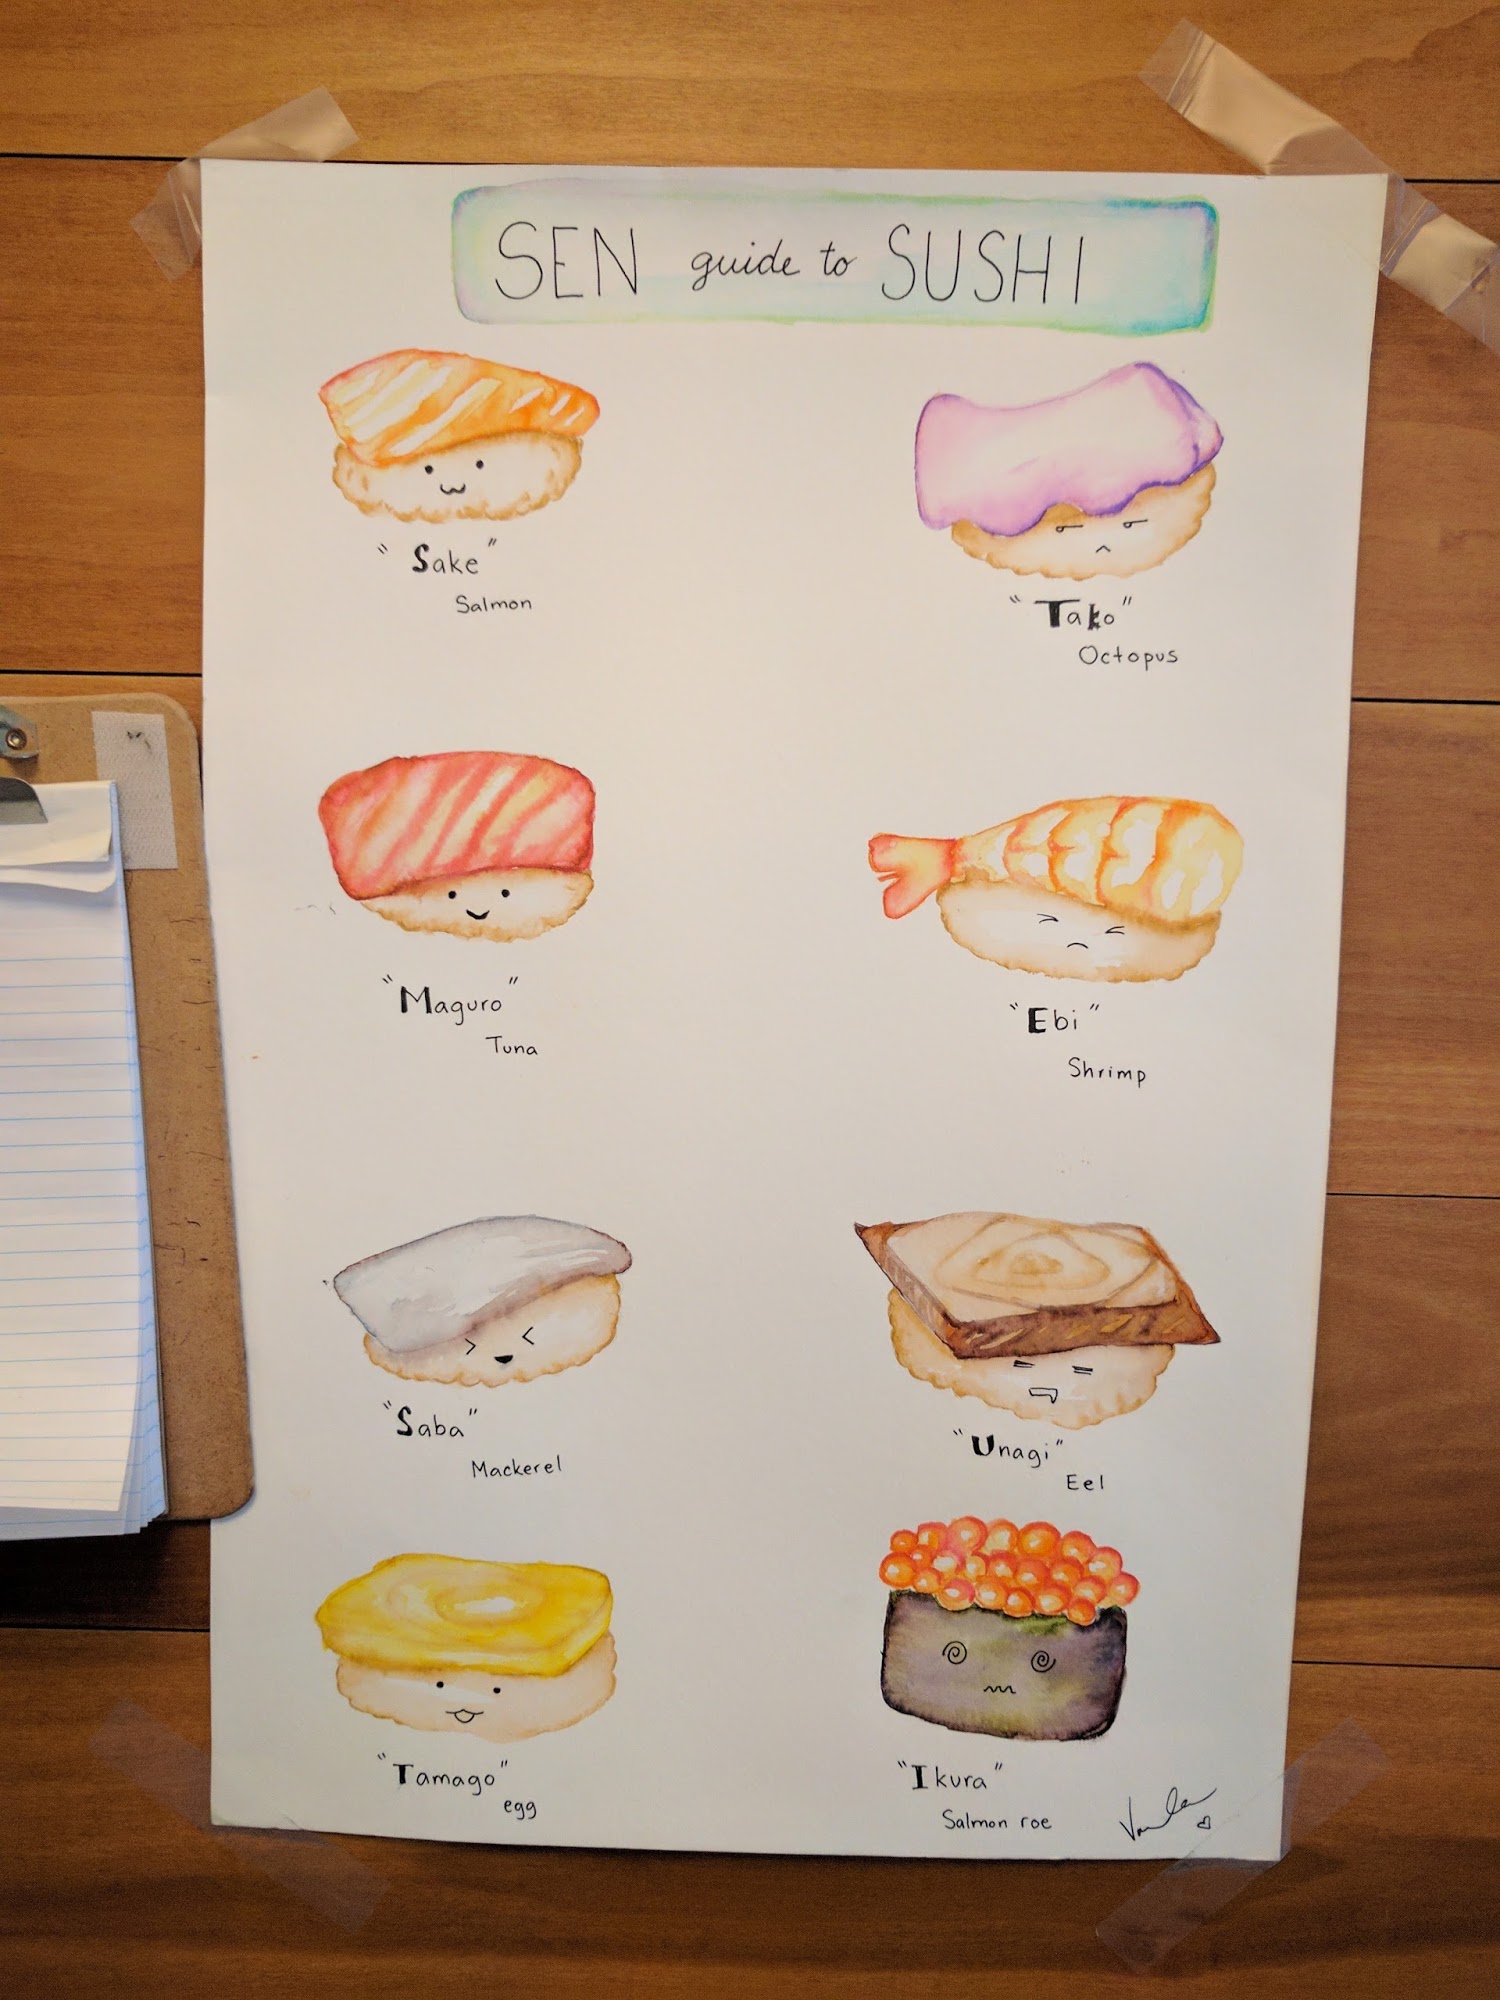 SEN guide to SUSHI
"Sake"
Salmon
"Tako"
Octopus
"Maguro"
Tuna
"Ebi"
Shrimp
"Saba"
Mackerel
"Unagi"
Eel
"Tamago"
egg
"Ikura"
Salmon roe